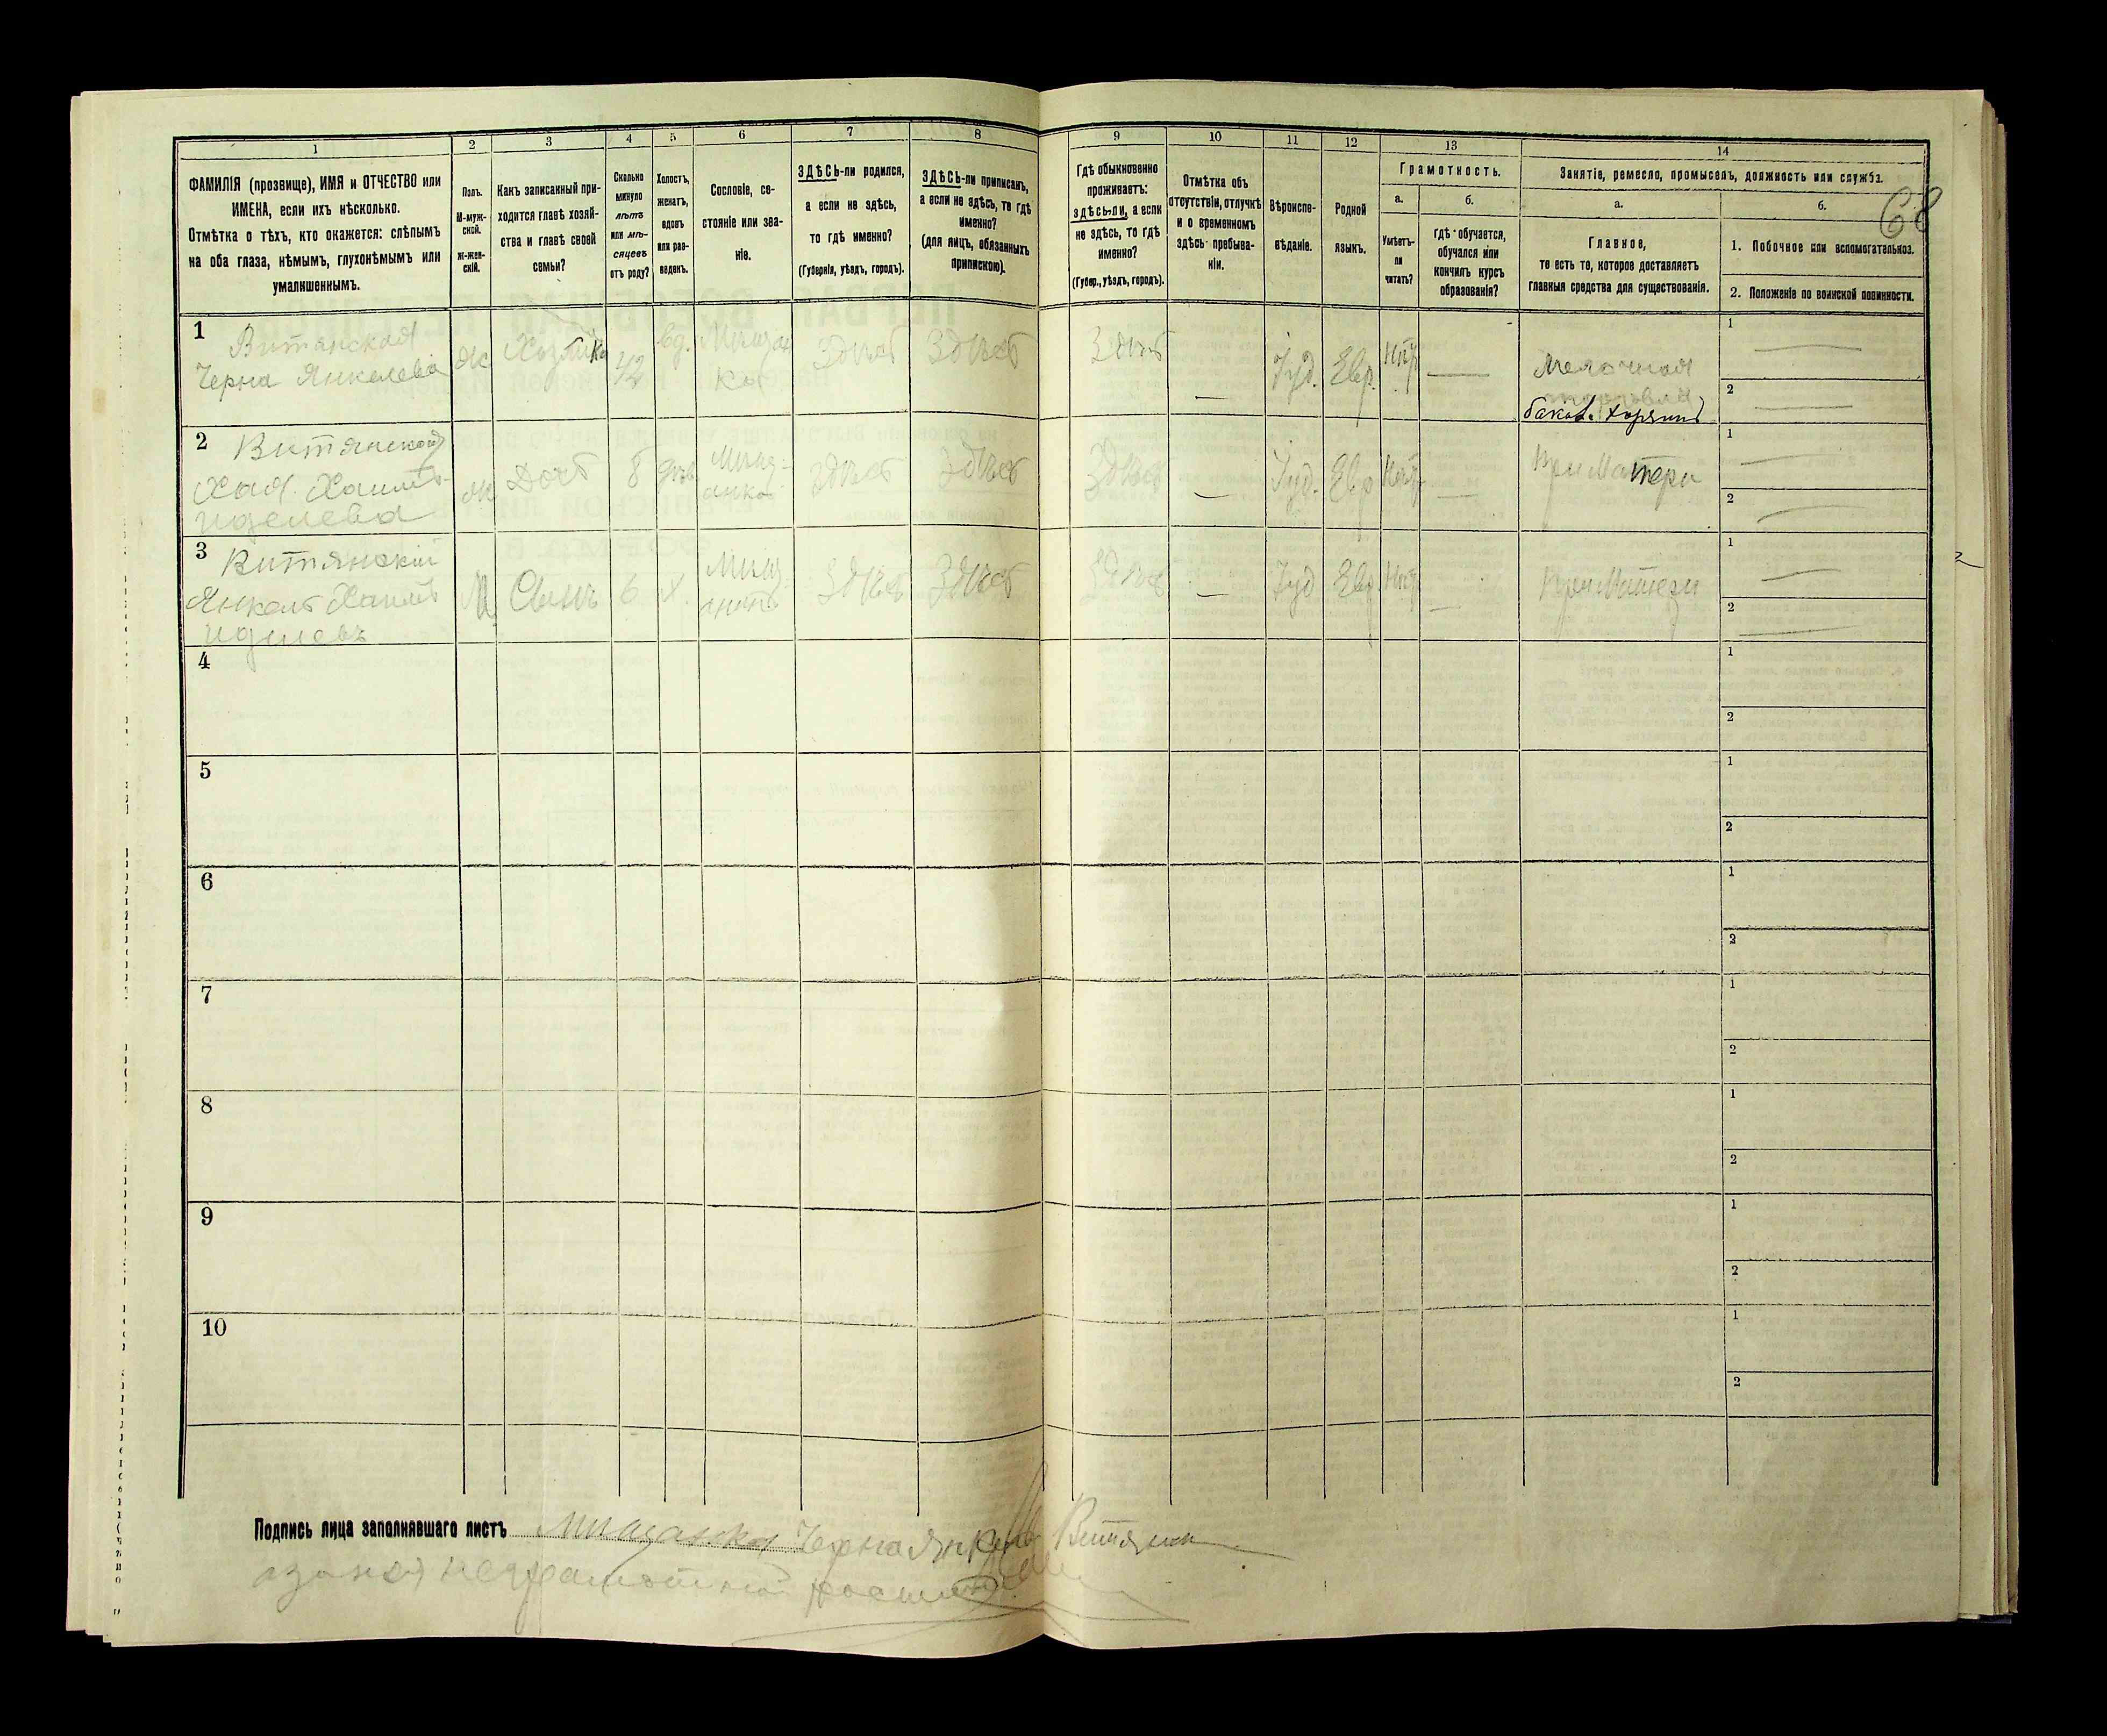 68
1 2 3 4 5 6 7 8 9 10 11 12 13 14
ФАМИЛІЯ (прозвище), ИМЯ и ОТЧЕСТВО или
ИМЕНА, если ихъ нѣсколько.
Отмѣтка о тѣхъ, кто окажется: слѣпымъ
на оба глаза, нѣмымъ, глухонѣмымъ или
умалишеннымъ.
Полъ.
М-муж-
ской.
Ж-жен-
скій.
Какъ записанный при-
ходится главѣ хозяй-
ства и главѣ своей
семьи?
Сколько
минуло
лѣтъ
или мѣ-
сяцевъ
отъ роду?
Холостъ,
женатъ,
вдовъ
или раз-
веденъ.
Сословіе, со-
стояніе или зва-
ніе.
ЗДѢСЬ-ли родился,
а если не здѣсь,
то гдѣ именно?
(Губернія, уѣздъ, городъ).
ЗДѢСЬ-ли приписанъ,
а если не здѣсь, то гдѣ
именно?
(для лицъ, обязанныхъ
припискою).
Гдѣ обыкновенно
проживаетъ:
здѣсь-ли, а если
не здѣсь, то гдѣ
именно?
(Губер., уѣздъ, городъ).
Отмѣтка объ
отсутствіи, отлучкѣ
и о временномъ
здѣсь пребыва-
ніи.
Вѣроиспо-
вѣданіе.
Родной
языкъ.
Грамотность.
а.
Умѣетъ-
ли
читать?
б.
гдѣ обучается,
обучался или
кончилъ курсъ
образованія?
Занятіе, ремесло, промыселъ, должность или служба.
а.
Главное,
то есть то, которое доставляетъ
главныя средства для существованія.
б.
1. Побочное или вспомогательное.
2. Положеніе по воинской повинности.
1 Витянская
Черна Янкелева
Ж
Хозяйка
42
вд.
Мѣщан
ка
Здѣсь
Здѣсь
Здѣсь
—
Іуд.
Евр.
Нѣтъ
—
Мелочная
торговля
бакал.
1 —
2 —
2 Витянская
Хая Хаимъ-
иделева
Ж
Дочь
8
дѣв
Мѣщ-
анка
здѣсь
Здѣсь
Здѣсь
—
Іуд.
Евр
Нѣтъ
—
При Матери
1 —
2 —
3 Витянскій
Янкель Хаимъ
иделевъ
М
Сынъ
6
Х.
Мѣщ-
анинъ
Здѣсь
Здѣсь
Здѣсь
—
Іуд
Евр
Нѣтъ
—
При Матери
1 —
2 —
4
1
2
5
1
2
6
1
2
7
1
2
8
1
2
9
1
2
10
1
2
Подпись лица заполнявшаго листъ Мищанка Черна Янкель Витянск